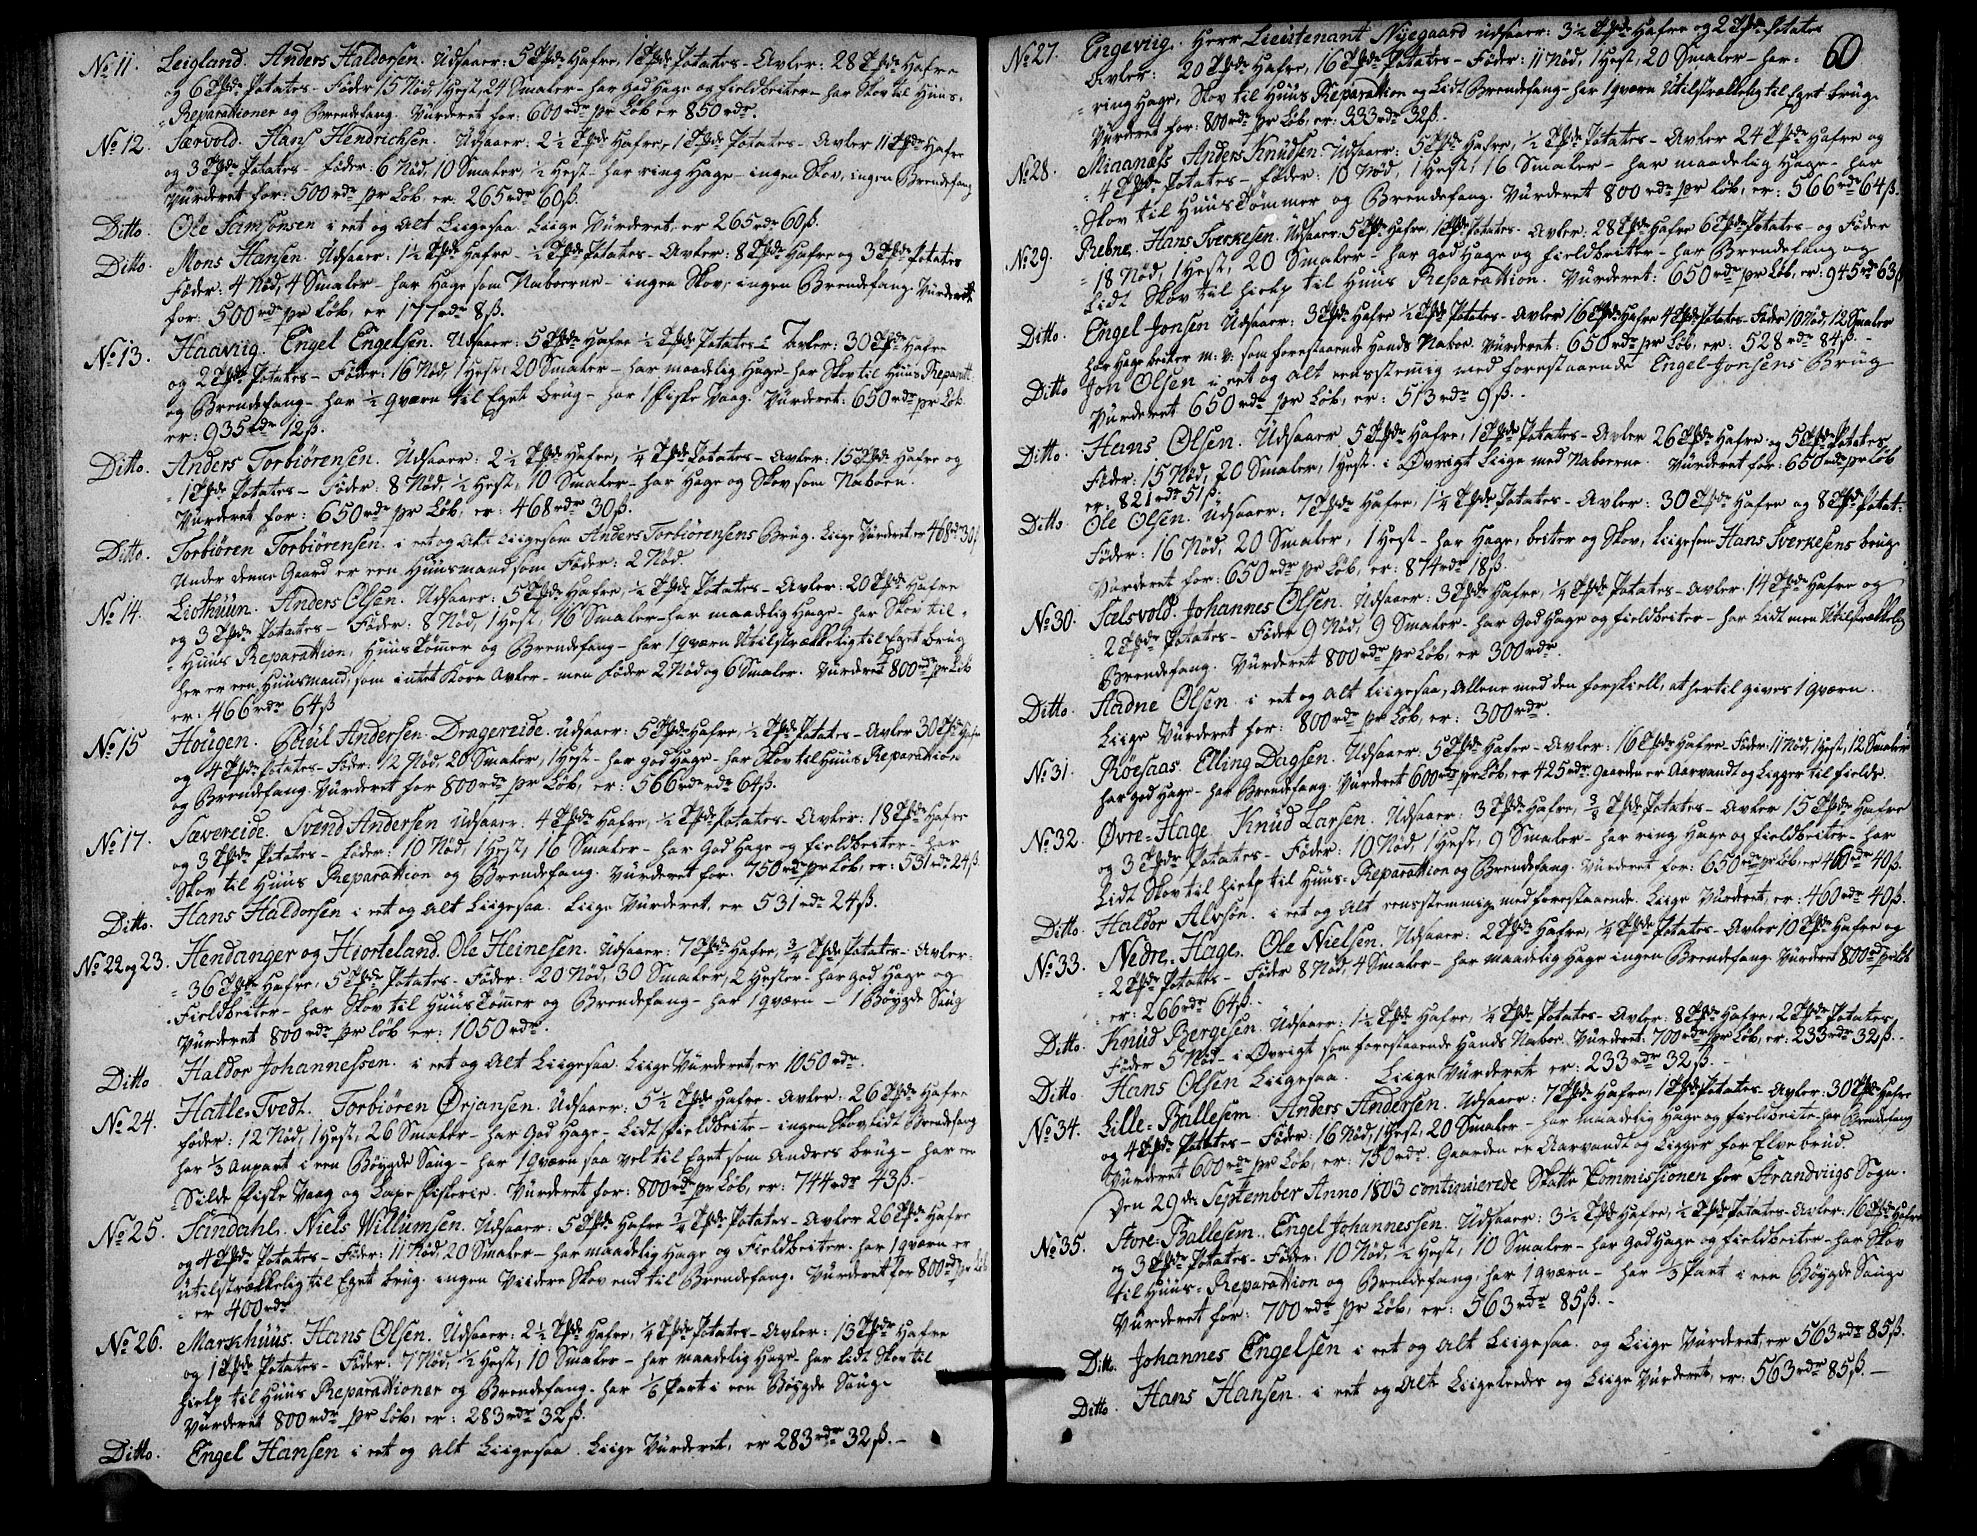 No 11. Leigland. Anders Haldorsen. Udsaaer: 5 Tdr Hafre, 1 Tde Potates - Avler: 28 Tdr Hafre
og 6 Tdr Potates - Føder 15 Nød, 1 Hest, 24 Smaler - har god Hage og fieldbeiter - har Skov til Huus-
Reparationer og Brendefang. Vurderet for: 600 rdr pr Løb er 850 rdr.
No 12. Særvold. Hans Hendrichsen. Udsaaer: 2½ Tdr Hafre, 1 Tde Potates - Avler 11 Tdr Hafre
og 3 Tdr Potates - føder: 6 Nød, 10 Smaler, ½ Hest - har ring Hage - ingen Skov, ingen Brendefang
Vurderet for: 500 rdr pr Løb, er: 265 rdr 60 ß.
Ditto. Ole Samsonsen i eet og alt Liigesaa. Liige Vurderet, er 265 rdr 60 ß.
Ditto. Mons Hansen. Udsaaer: 1½ Tdr Hafre - ½ Tde Potates - Avler: 8 Tdr Hafre og 3 Tdr Potates
Føder: 4 Nød, 4 Smaler - har Hage som Naboerne - ingen Skov, ingen Brendefang. Vurderet
for: 500 rdr pr Løb, er 177 rdr 8 ß.
No 13. Haaviig. Engel Engelsen. Udsaaer: 5 Tdr Hafre ½ Tde Potates - Avler: 30 Tdr Hafre
og 2 Tdr Potates - Føder: 16 Nød, 1 Hest, 20 Smaler - har maadelig Hage - har Skov til Huus Reparatt:
og Brendefang - har ½ qværn til Eget brug - har 1 Fiske Vaag. Vurderet: 650 rdr pr Løb.
er: 935 rdr 12 ß.
Ditto. Anders Torbiørensen. Udsaaer: 2½ Tdr Hafre, ¼ Tde Potates - Avler: 15 Tdr Hafre og
1 Tde Potates - Føder: 8 Nød, ½ Hest, 10 Smaler - har Hage og Skov som Naboen.
Vurderet for: 650 rdr pr Løb, er: 468 rdr 30 ß.
Ditto. Torbiören Torbiörensen. i eet og alt Liigesom Anders Torbiörensens Brug. Liige Vurderet, er 468 rd 30 ß
Under denne Gaard er een Huusmand som Føder: 2 Nød.
No 14. Liothuun. Anders Olsen. Udsaaer: 5 Tdr Hafre, ½ Tde Potates - Avler: 20 Tdr Hafre
og 3 Tdr Potates - Føder: 8 Nød, 1 Hest, 16 Smaler - har maadelig Hage - har Skov til-
Huus Reparattion, Huus Tømer og Brendefang - har 1 qværn Utilstrækkelig til Eget brug
her er een Huusmand, som intet Korn Avler - men føder 2 Nød og 6 Smaler. Vurderet 800 rdr pr Løb
er: 466 rdr 64 ß
No 15 Hougen. Poul Andersen Dragereide. udsaaer: 5 Tdr Hafre, ½ Tde Potates - Avler 30 Tdr Hafre
og 4 Tdr Potates - Føder: 12 Nød, 20 Smaler, 1 Hest - har god Hage - har Skov til Huus Reparation
og Brendefang. Vurderet for 800 rdr pr Løb, er: 566 rdr 64 ß.
No 17. Sævereide. Svend Andersen Udsaaer: 4 Tdr Hafre, ½ Tde Potates - Avler: 18 Tdr Hafre
og 3 Tdr Potates - Føder: 10 Nød, 1 Hest, 16 Smaler - har God Hage og fieldbeiter - har
Skov til Huus Reparation og Brendefang. Vurderet for 750 rdr pr Løb, er: 531 rdr 24 ß.
Ditto. Hans Haldorsen i eet og Alt Liigesaa. Liige Vurderet, er 531 rdr 24 ß.
No 22 og 23. Hendanger og Hiorteland. Ole Heinesen. Udsaaer: 7 Tdr Hafre, ¾ Tde Potates - Avler:
36 Tdr Hafre, 5 Tdr Potates - Føder: 20 Nød, 30 Smaler, 2 Hester - har god Hage og
Fieldbeiter - har Skov til Huus Tømer og Brendefang - har 1 qværn - 1 Bøygde Saug
Vurderet 800 rdr pr Løb er: 1050 rdr.
Ditto Haldor Johannessen. i eet og Alt Liigesaa. Liige Vurderet, er 1050 rdr.
No 24. Hatle-Tvedt. Torbiören Ørjansen. Udsaaer: 5½ Tdr Hafre - Avler: 26 Tdr Hafre
føder: 12 Nød, 1 Hest, 26 Smaler - har God Hage - Lidt fieldbeite - ingen Skov Lidt Brendefang
har ⅓ Anpart i een Bøygde Saug - har 1 qværn saa vel til Eget som Andres brug - har en
Silde Fiske Vaag og Laxe Fiskerie. Vurderet for: 800 rdr pr Løb, er: 744 rdr 43 ß.
No 25. Sundahl. Niels Willumsen. Udsaaer: 5 Tdr Hafre ¾ Tde Potates - Avler 26 Tdr Hafre
og 4 Tdr Potates - Føder: 11 Nød, 20 Smaler - har maadelig Hage og Fieldbeiter. har 1 qværn er
utilstrækkelig til Eget brug. ingen Viidere Skov end til Brendefang. Vurderet for 800 rdr pr Løb
er 400 rdr.
No 26. Markhuus. Hans Olsen. Udsaaer: 2½ Tdr Hafre, ¼ Tde Potates - Avler: 13 Tdr Hafre
og 1 Tde Potates - Føder: 7 Nød, ½ Hest, 10 Smaler - har maadelig Hage - har lidt Skov til
hielp til Huus Reparationer og Brendefang - har ⅙ Part i een Bøygde Saug.
Vurderet 800 rdr pr Løb, er: 283 rdr 32 ß.
Ditto. Engel Hansen i eet og Alt Liigesaa. Liige Vurderet, er 283 rdr 32 ß.
60
No 27. Engeviig. Herr Lieutenant Nyegaard udsaaer: 3½ Tdr Hafre og 2 Tdr Potates
Avler: 20 Tdr Hafre, 16 Tdr Potates - Føder: 11 Nød, 1 Hest, 20 Smaler - har
ring Hage, Skov til Huus Reparation og Lidt Brendefang - har 1 qværn Utilstrækkelig til Eget brug.
Vurderet for: 800 rdr pr Løb, er: 333 rdr 32 ß.
No 28. Miaanæss Anders Knudsen. Udsaaer: 5 Tdr Hafre, ½ Tde Potates - Avler 24 Tdr Hafre og
4 Tdr Potates - Føder: 10 Nød, 1 Hest, 16 Smaler - har maadelig Hage - har
Skov til Huus Tømmer og Brendefang. Vurderet 800 rdr pr Løb, er: 566 rdr 64 ß.
No 29. Rebne, Hans Sverkesen. Udsaaer 5 Tdr Hafre, 1 Tde Potates - Avler: 28 Tdr Hafre 6 Tdr Potates - og Føder
18 Nød, 1 Hest, 20 Smaler - har god Hage og fieldbeiter - har Brendefang og
Lidt Skov til hielp til Huus Reparattion. Vurderet: 650 rdr pr Løb, er: 945 rdr 63 ß
Ditto. Engel Jonsen Udsaaer: 3 Tdr Hafre ½ Tde Potates - Avler 16 Tdr Hafre 4 Tdr Potates - Føder 10 Nød, 12 Smaler
har Hage beiter m: v: som forestaaende Hands Naboe. Vurderet: 650 rdr pr Løb, er: 528 rdr 84 ß.
Ditto Jon Olsen i eet og Alt eensstemig med forestaaende Engel Jonsens Brug
Vurderet 650 rdr pr Løb, er: 513 rdr 9 ß.
Ditto. Hans Olsen. Udsaaer 5 Tdr Hafre, 1 Tde Potates - Avler 26 Tdr Hafre og 5 Tdr Potates
Føder: 15 Nød, 20 Smaler, 1 Hest. i Øvrigt Liige med Naboerne. Vurderet for: 650 rdr pr Løb
er: 821 rdr 51 ß.
Ditto. Ole Olsen. Udsaaer: 7 Tdr Hafre, 1¼ Tde Potates - Avler: 30 Tdr Hafre og 8 Tdr Potat:
Føder: 16 Nød, 20 Smaler, 1 Hest - har Hage, beiter og Skov, Liigesom Hans Sverkesens brug.
Vurderet for: 650 rdr pr Løb, er: 874 rdr 18 ß.
No 30. Salsvold. Johannes Olsen. Udsaaer: 3 Tdr Hafre, ¼ Tde Potates - Avler: 14 Tdr Hafre og
2 Tdr Potates - Føder 9 Nød, 9 Smaler - har God Hage og fieldbeiter - har Lidt men Utilstrækkelig
Brendefang. Vurderet 800 rdr pr Løb, er 300 rdr.
Ditto. Aadne Olsen. i eet og Alt Liigesaa, Allene med den forskiell, at hertil gives 1 qværn.
Liige Vurderet for: 800 rdr pr Løb, er: 300 rdr.
No 31. Røesaas. Elling Dagsen. Udsaaer: 5 Tdr Hafre - Avler: 16 Tdr Hafre - Føder: 11 Nød, 1 Hest, 12 Smaler
har god Hage - har Brendefang. Vurderet 600 rdr pr Løb, er 425 rdr. Gaarden er Aarvandt og Ligger til fields.
No 32. Øvre-Hage. Knud Larsen. Udsaaer: 3 Tdr Hafre, ⅜ Tde Potates - Avler 15 Tdr Hafre
og 3 Tdr Potates - Føder: 10 Nød, 1 Hest, 9 Smaler - har ring Hage og fieldbeiter - har
Lidt Skov til hielp til Huus-Reparattion og Brendefang. Vurderet for: 650 rdr pr Løb, er 460 rdr 40 ß.
Ditto. Haldor Alvsøn. i eet og Alt eensstemmig med forestaaende. Liige Vurderet, er: 460 rdr 40 ß.
No 33. Nedre-Hage. Ole Nielsen. Udsaaer: 2 Tdr Hafre, ¼ Tde Potates - Avler 10 Tdr Hafre og
2 Tdr Potates - Føder 8 Nød, 4 Smaler - har maadelig Hage ingen Brendefang. Vurderet 800 rdr pr Løb
er: 266 rdr 64 ß.
Ditto. Knud Bergesen. Udsaaer: 1½ Tdr Hafre, ¼ Tde Potates - Avler: 8 Tdr Hafre, 2 Tdr Potates,
Føder 5 Nød - i Øvrigt som forestaaende Hands Naboe. Vurderet: 700 rdr pr Løb, er: 233 rdr 32 ß.
Ditto. Hans Olsen Liigesaa. Liige Vurderet er: 233 rdr 32 ß.
No 34. Lille-Ballesem. Anders Andersen. Udsaaer: 7 Tdr Hafre, 1 Tde Potates - Avler: 30 Tdr Hafre
og 4 Tdr Potates - Føder: 16 Nød, 1 Hest, 20 Smaler - har maadelig Hage og fieldbeite - har Brendefang
Vurderet 600 rdr pr Løb, er: 750 rdr. Gaarden er Aarvandt og Ligger for Elvebrud.
Den 29 de September Anno 1803 continuerede Skatte Commissionen for Strandviigs Sogn.
No 35. Store-Ballesem. Engel Johannessen. Udsaaer: 3½ Tdr Hafre, ½ Tde Potates - Avler: 16 Tdr Hafre
og 3 Tdr Potates - Føder: 10 Nød, ½ Hest, 10 Smaler - har God Hage og fieldbeiter - har Skov
til Huus-Reparattion og Brendefang, har 1 qværn - har ⅓ Part i een Bøygde Sauge
Vurderet for: 700 rdr pr Løb, er: 563 rdr 85 ß.
Ditto. Johannes Engelsen i eet og Alt Liigesaa. og Liige Vurderet, er 563 rdr 85 ß.
Ditto. Hans Hansen. i eet og Alt Liigeleedes og Liige Vurderet, er: 563 rdr 85 ß.